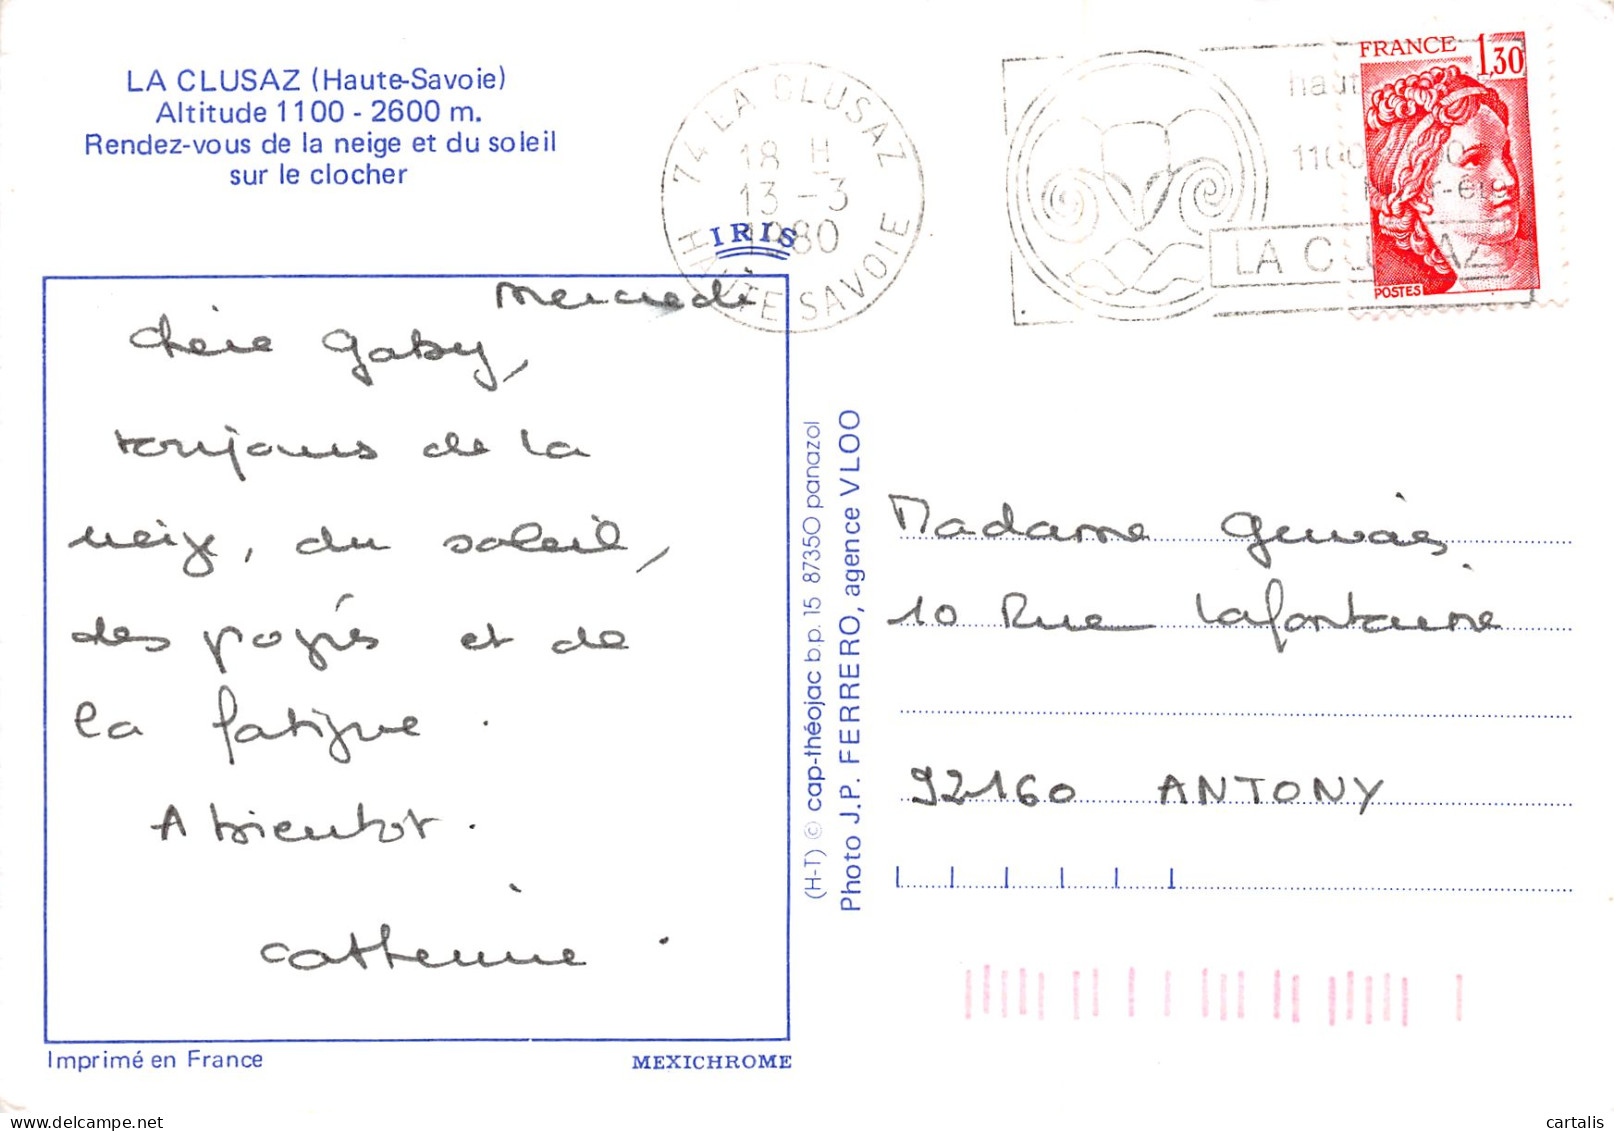 LA CLUSAZ (Haute-Savoie)
Altitude 1100 - 2600 m.
Rendez-vous de la neige et du soleil
sur le clocher
74 LA CLUSAZ
18 H
13 -3
1980
HAUTE SAVOIE
IRIS
FRANCE
1,30
POSTES
haut
1100
LA CLUSAZ
Mercredi
Chère Gaby,
toujours de la
neige, du soleil,
des et de
la fatigue.
A bientot.
Catherine.
(H-T) © cap-théojac b.p. 15 87350 panazol
Photo J.P. FERRERO, agence VLOO
Madame Gervais
10 Rue Lafontaine
92160 ANTONY
Imprimé en France
MEXICHROME
cartalis
www.delcampe.net